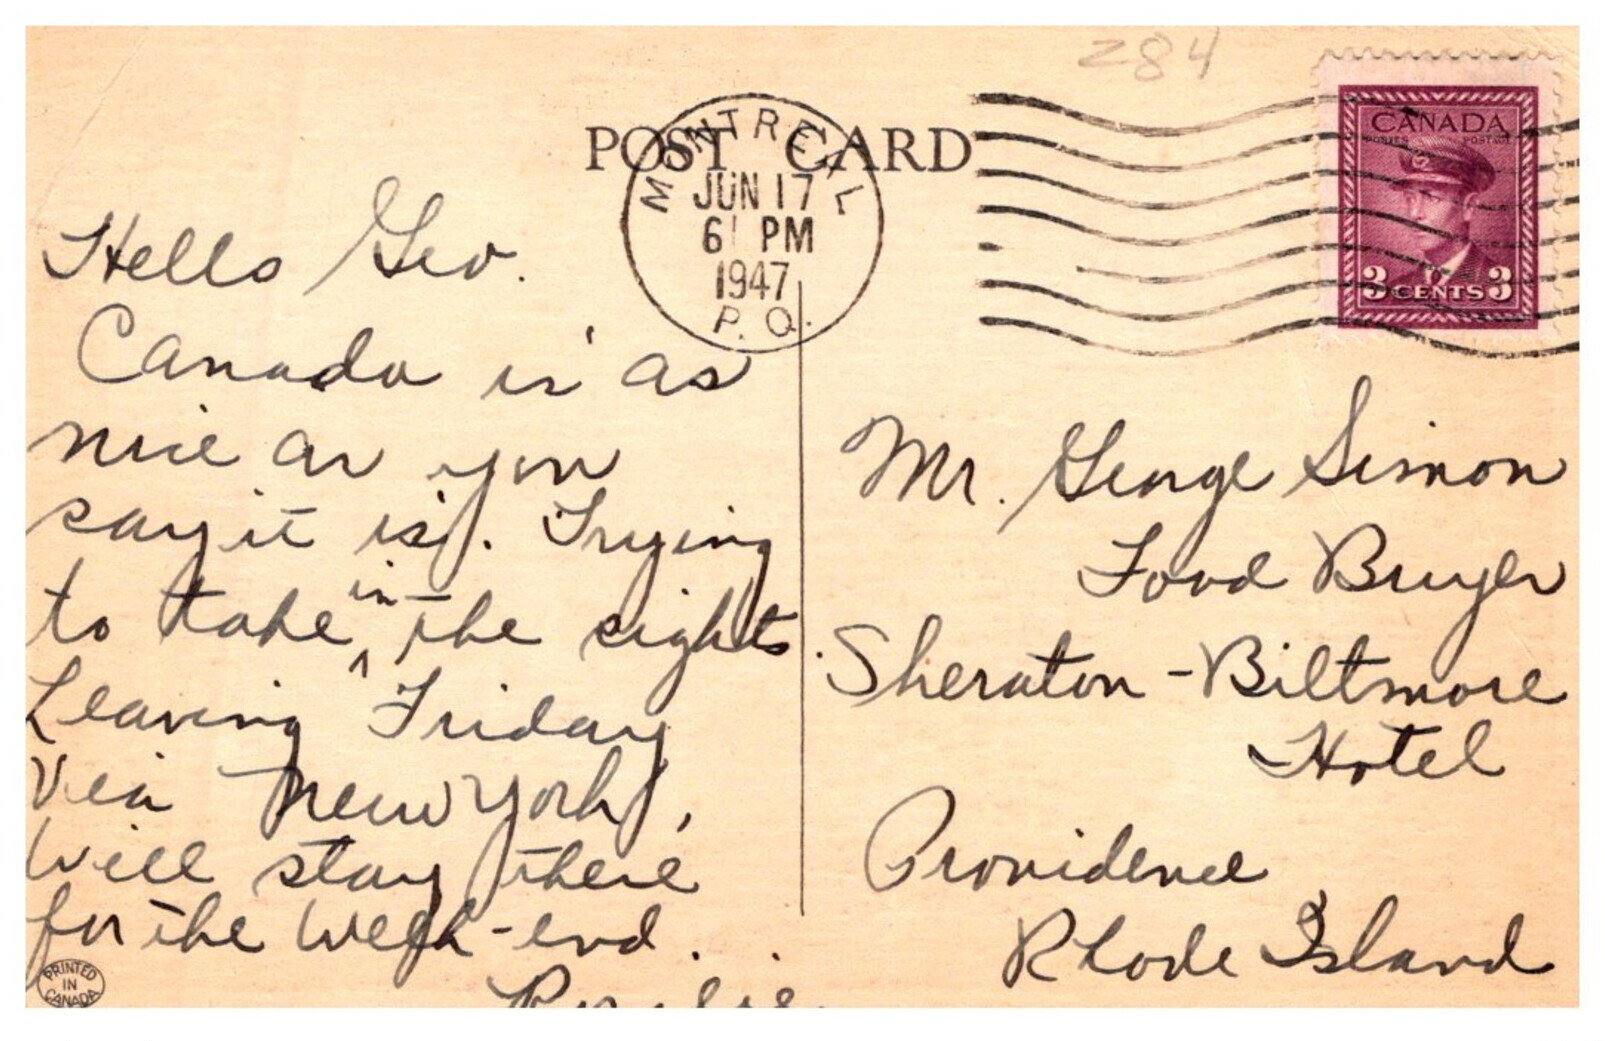 284
POST CARD
MONTREAL
JUN 17
6 PM
1947
P. Q.
CANADA
POSTES POSTAGE
3 CENTS 3
Hello Geo.
Canada is as
nice as you
say it is. Trying
to take in the sights
Leaving Friday
Via New York,
Will stay there
for the week-end.
Mr. George Simon
Food Buyer
Sheraton-Biltmore
Hotel
Providence
Rhode Island
PRINTED
IN
CANADA